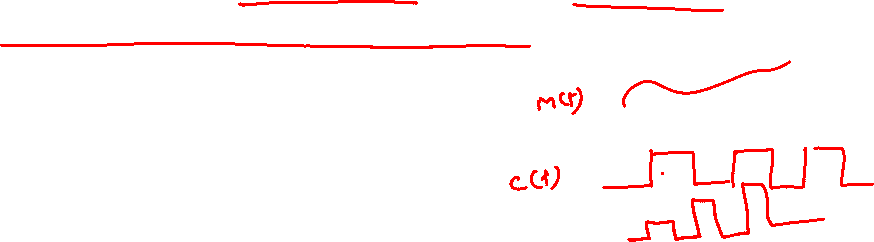 m(t)
c(t)